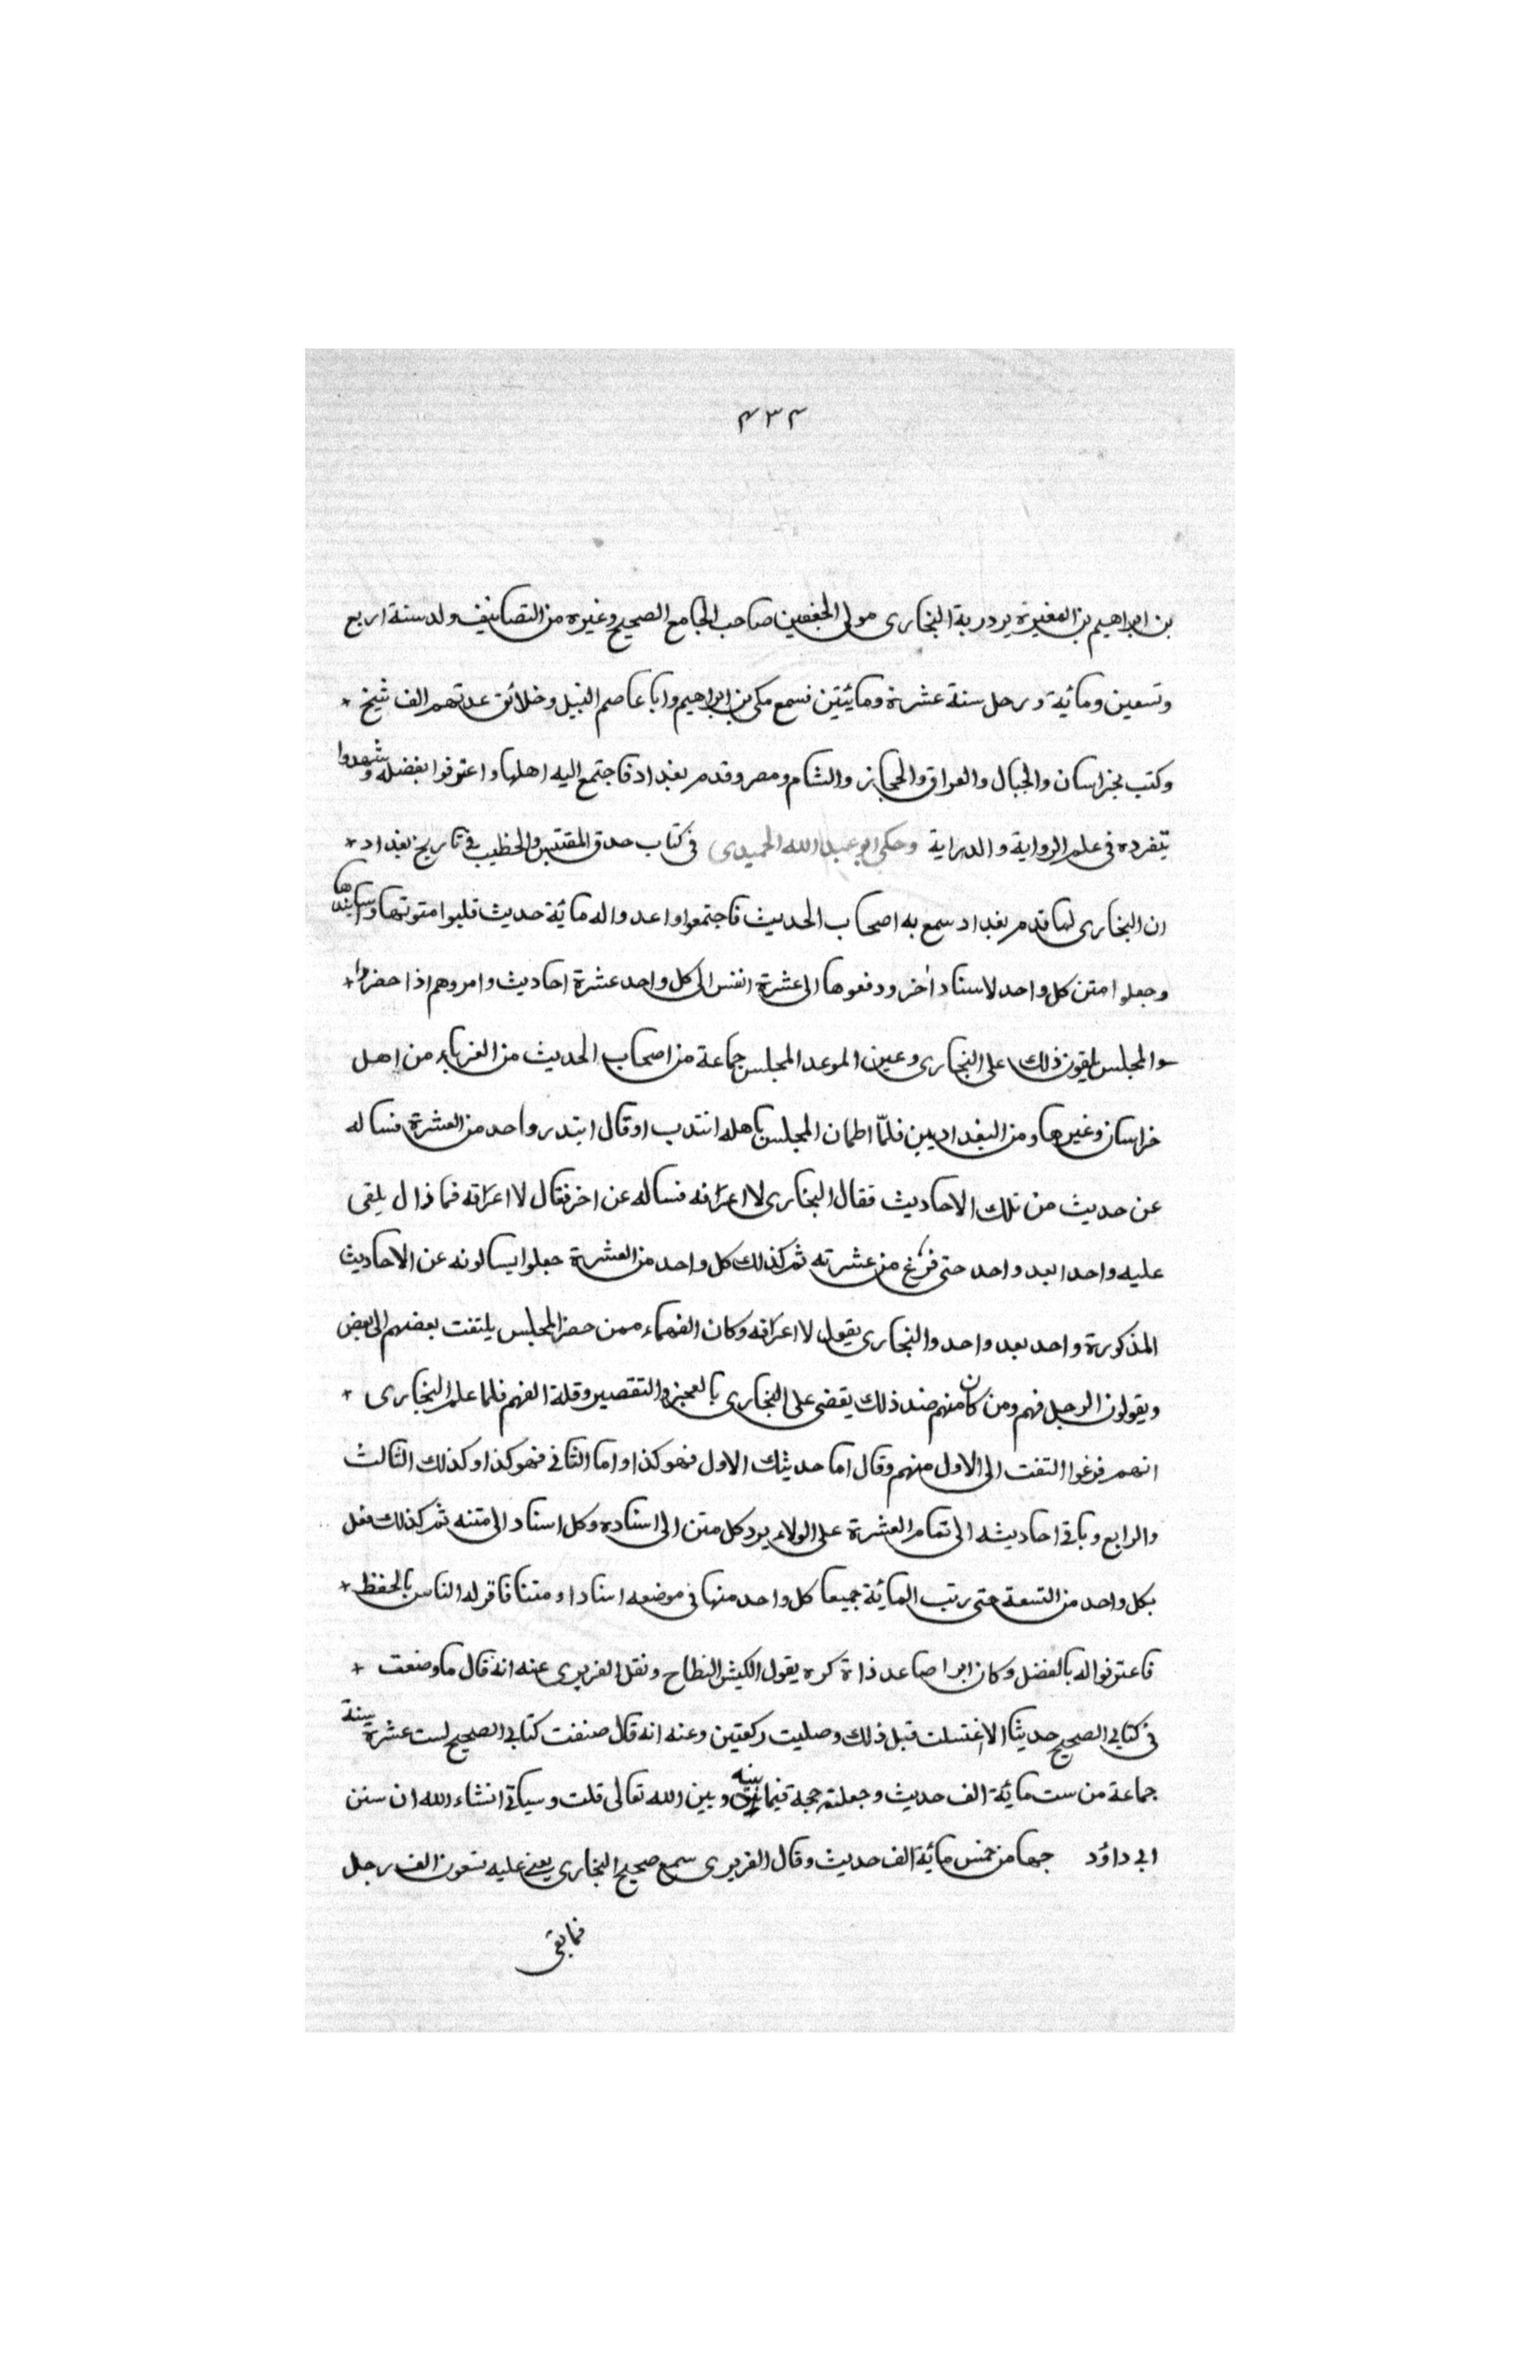 ۴۳۴
بن ابراهيم بن المغيرة بردزبة البخارى مولى الجعفين صاحب الجامع الصحيح وغيره من التصانيف ولد سنة اربع
وتسعين ومائية ورحل سنة عشرة ومائيتين فسمع مكى بن ابراهيم وابا عاصم النبيل وخلائق عدتهم الف شيخ +
وكتب بخراسان والجبال والعراق والحجاز والشام ومصر وقدم بغداد فاجتمع اليه اهلها واعترفوا بفضله وشهدوا
بتفرده فى علم الرواية والدراية وحكى ابو عبد الله الحميدى فى كتاب حدق المقتبس والخطيب فى تاريخ بغداد +
ان البخارى لما قدم بغداد سمع به اصحاب الحديث فاجتمعوا واعدوا له مائية حديث قلبوا متونها واسانيدها
وجعلوا متن كل واحد لاسناد اخر ودفعوها الى عشرة انفس الى كل واحد عشرة احاديث وامروهم اذا حضروا +
المجلس يلقون ذلك على البخارى وعين الموعد المجلس جماعة من اصحاب الحديث من الغرباء من اهل
خراسان وغيرها ومن البغداديين فلمّا اطمان المجلس باهله انتدب او قال ابتدر واحد من العشرة فساله
عن حديث من تلك الاحاديث فقال البخارى لا اعرفه فساله عن اخر فقال لا اعرفه فما ذال يلقى
عليه واحدا بعد واحد حتى فرغ من عشرته ثم كذلك كل واحد من العشرة جعلوا يسالونه عن الاحاديث
المذكورة واحد بعد واحد والبخارى يقول لا اعرفه وكان الفهماء ممن حضر المجلس يلتفت بعضهم الى بعض
ويقولون الرجل فهم ومن كان منهم ضد ذلك يقضى على البخارى بالعجز والتقصير وقلة الفهم فلما علم البخارى +
انهم فرغوا التفت الى الاول منهم وقال اما حديثك الاول فهو كذا واما الثانى فهو كذا وكذلك الثالث
والرابع وباقى احاديثه الى تمام العشرة على الولاء يرد كل متن الى اسناده وكل اسناد الى متنه ثم كذلك فعل
بكل واحد من التسعة حتى رتب المائية جميعا كل واحد منها فى موضعه اسنادا ومتنا فاقر له الناس بالحفظ +
فاعترفوا له بالفضل وكان ابرا صاعد ذا ة كره يقول الكبش النطاح ونقل الفربرى عنه انه قال ما وضعت +
فى كتابى الصحيح حديثا الا اغتسلت قبل ذلك وصليت ركعتين وعنه انه قال صنفت كتابى الصحيح لست عشرة سنة
جماعة من ست مائية الف حديث وجعلته حجة فيما بينه وبين الله تعالى قلت وسياتى انشاء الله ان سنن
ابى داؤد جمها من خمس مائية الف حديث وقال الفربرى سمع صحيح البخارى يعنى عليه تسعون الف رجل
فما بقى